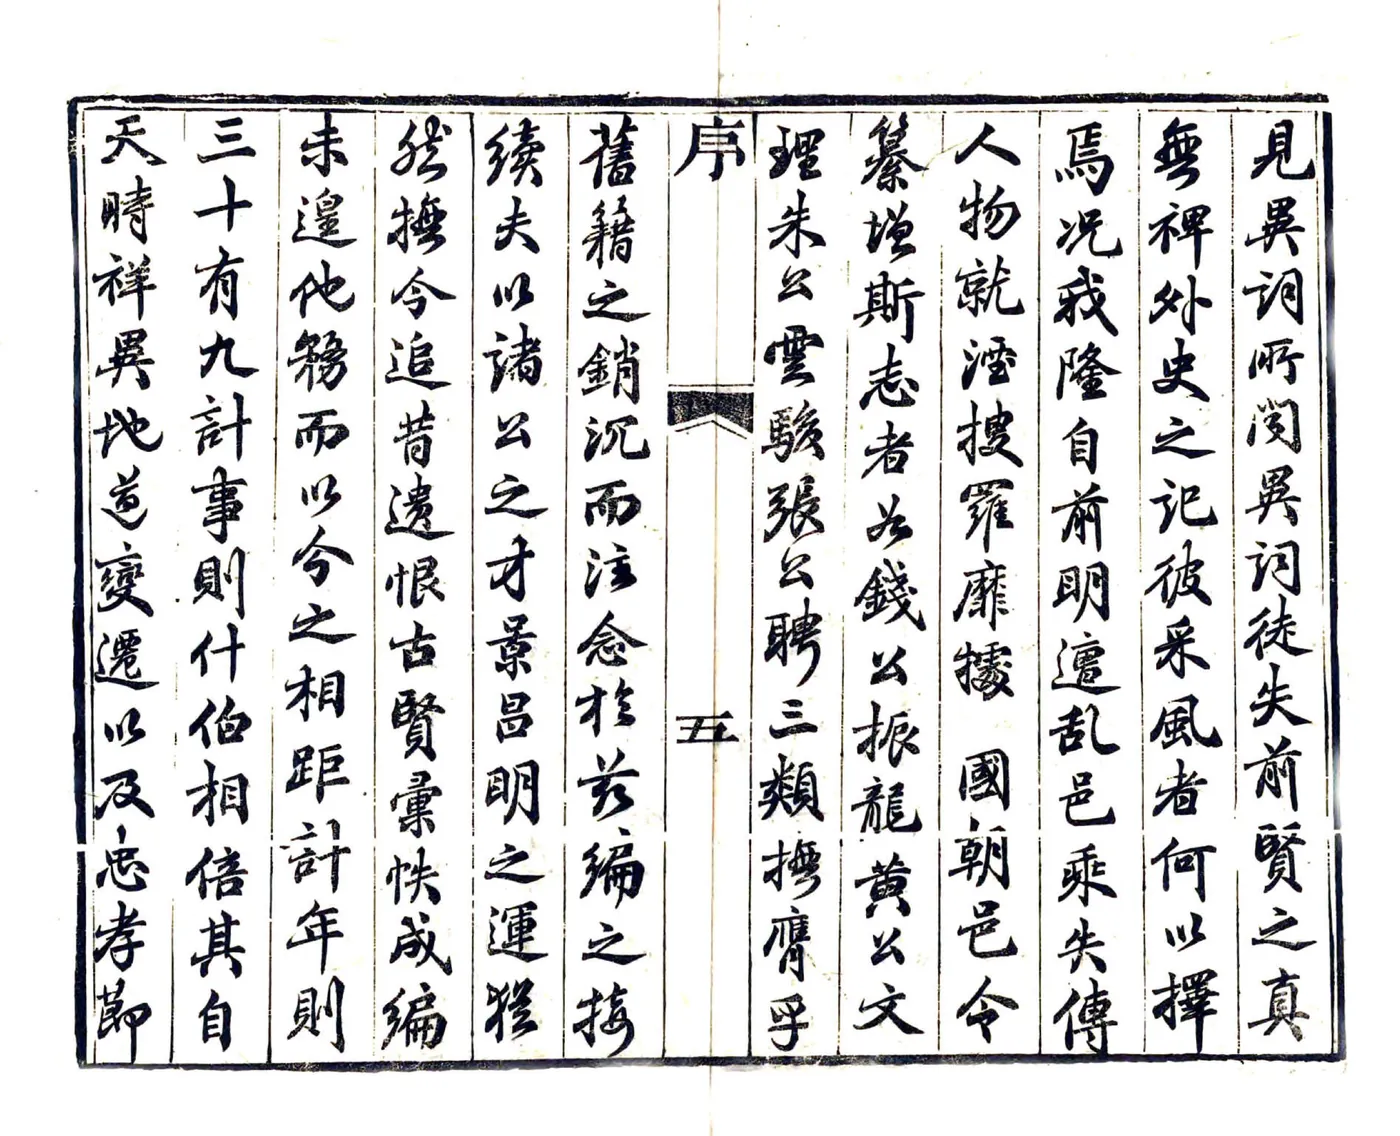 見異詞所聞異詞徒失前賢之真
無裨外史之記彼采風者何以擇
焉况我隆自前明遭乱邑乘失傳
人物就湮搜羅靡據　國朝邑令
纂增斯志者如錢公振龍黄公文
理朱公雲駿張公聘三類撫膺乎
序
五
舊籍之銷沉而注念於茲編之接
續夫以諸公之才景昌明之運猶
然撫今追昔遺恨古賢彙帙成編
未遑他務而以今之相距計年則
三十有九計事則什伯相倍其自
天時祥異地道變遷以及忠孝節